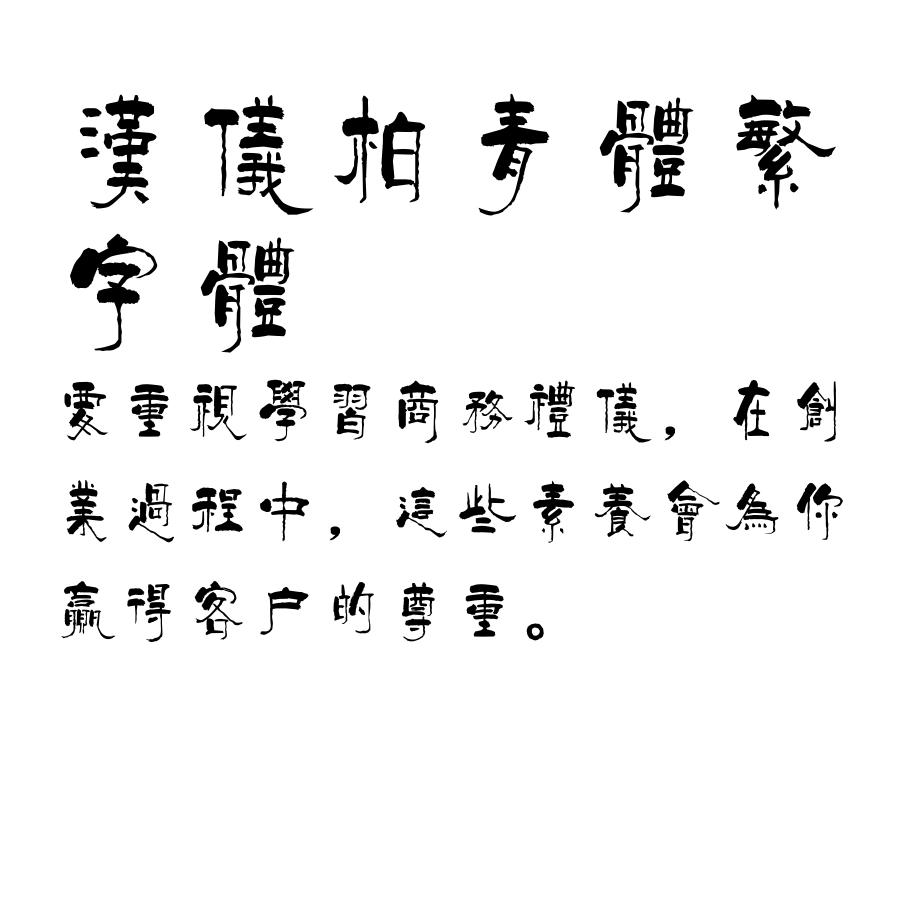 漢儀柏青體繁
字體
要重視學習商務禮儀，在創
業過程中，這些素養會為你
贏得客户的尊重。